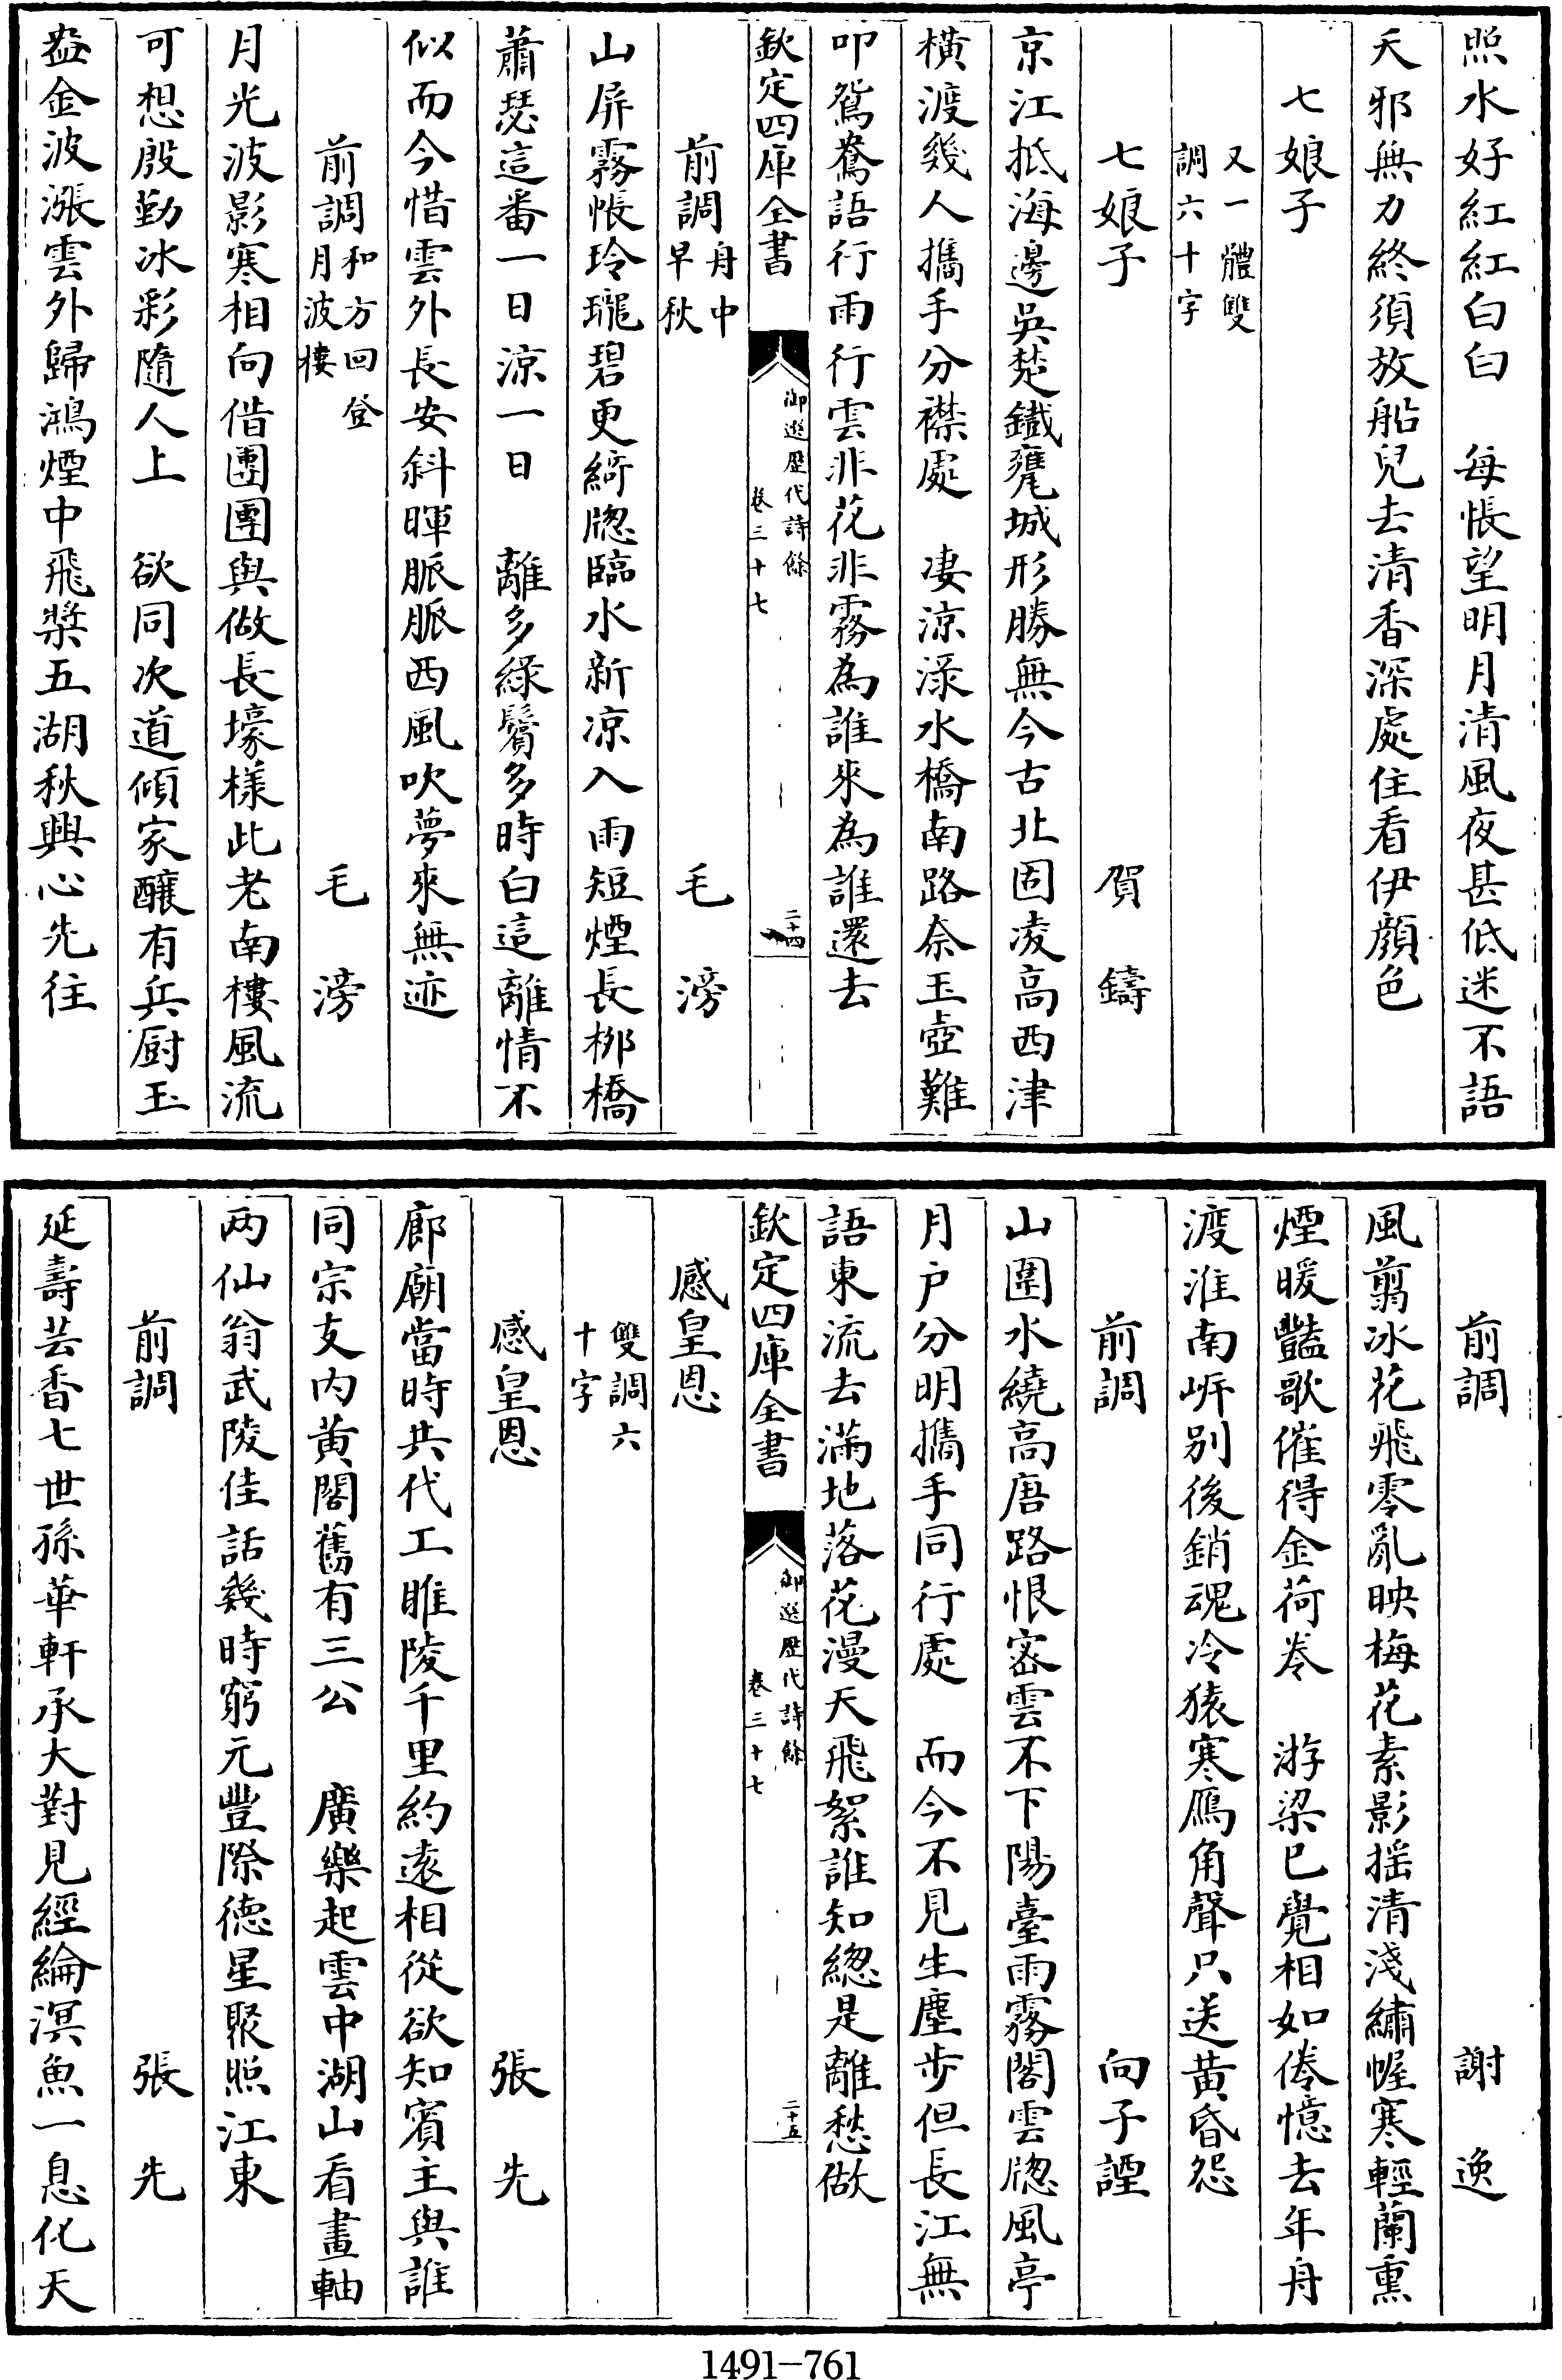 照水好紅紅白白　每悵望明月清風夜甚低迷不語
夭邪無力終須放船兒去清香深處住看伊顔色
七娘子
又一體雙
調六十字
七娘子　賀鑄
京江抵海邊吳楚鐵甕城形勝無今古北固凌高西津
橫渡幾人攜手分襟處　凄涼淥水橋南路奈玉壺難
叩鴛鴦語行雨行雲非花非霧為誰來為誰還去
欽定四庫全書
御選歷代詩餘
卷三十七
二十四
前調舟中
早秋
毛滂
山屏霧帳玲瓏碧更綺牎臨水新凉入雨短煙長栁橋
蕭瑟這番一日凉一日　離多綠鬢多時白這離情不
似而今惜雲外長安斜暉脈脈西風吹夢來無迹
前調和方回登
月波樓
毛滂
月光波影寒相向借團團與做長壕様此老南樓風流
可想殷勤冰彩隨人上　欲同次道傾家釀有兵厨玉
盎金波漲雲外歸鴻煙中飛槳五湖秋興心先往
前調　謝逸
風剪冰花飛零亂映梅花素影摇清淺繡幄寒輕蘭熏
煙暖豔歌催得金荷卷　游梁已覺相如倦憶去年舟
渡淮南㟁别後銷魂冷猿寒鴈角聲只送黄昏怨
前調　向子諲
山圍水繞高唐路恨宻雲不下陽臺雨霧閣雲牎風亭
月户分明攜手同行處　而今不見生塵步但長江無
語東流去滿地落花漫天飛絮誰知總是離愁做
欽定四庫全書
御選歷代詩餘
卷三十七
二十五
感皇恩
雙調六
十字
感皇恩　張先
廊廟當時共代工睢陵千里約逺相從欲知賓主與誰
同宗支内黄閣舊有三公　廣樂起雲中湖山看畫軸
两仙翁武陵佳話幾時窮元豐際徳星聚照江東
前調　張先
延壽芸香七世孫華軒承大對見經綸溟魚一息化天
1491-761